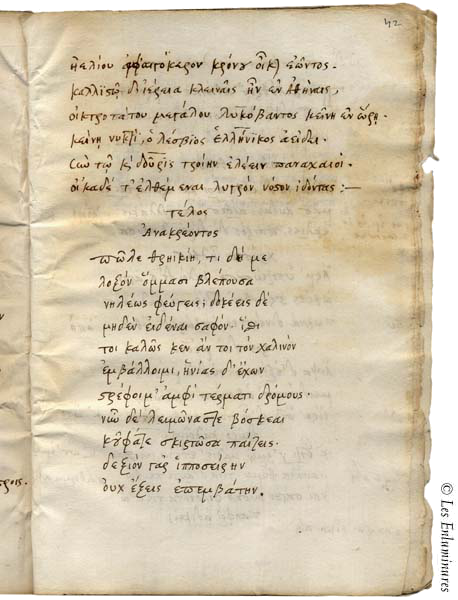 42
ἠελίου
καλλιστὼ δ' ἱέρεια κλειναῖς ἦν ἐν Ἀθήναις,
οἰκτροτάτου μεγάλου λυκόβαντος κείνη ἐν ὥρῃ·
κείνῃ νυκτὶ, ὁ λέσβιος ἑλλήνικος ἀείδει·
Σὺν τῷ καὶ δοῦρις τροίην ἑλέειν παναχαιοὶ·
οἴκαδέ τ' ἐλθέμεναι λυγρὸν νόστον ἰδόντας :—
τέλος
Ἀνακρέοντος
πῶλε θρηικίη, τί δή με
λοξὸν ὄμμασι βλέπουσα
νηλέως φεύγεις; δοκέεις δέ
μηδὲν εἰδέναι σαφόν· ἴσθι
τοι καλῶς κεν ἄν τοι τὸν χαλινὸν
ἐμβάλλοιμι, ἡνίας δ' ἔχων
στρέφοιμ' ἀμφὶ τέρματι δρόμους·
νῦν δὲ λειμῶνας τε βόσκεαι
κοῦφα τε σκιρτῶσα παίζεις·
δεξιὸν γὰρ ἱπποσείρην
οὐχ ἕξεις ἐπεμβάτην.
© Les Enluminures